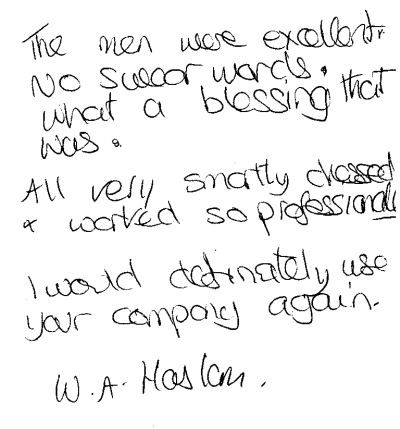 The men were excellent.
No swear words.
what a blessing that
was.
All very smartly dressed
& worked so professionally
I would definately use
your company again.
W.A. Haslam.